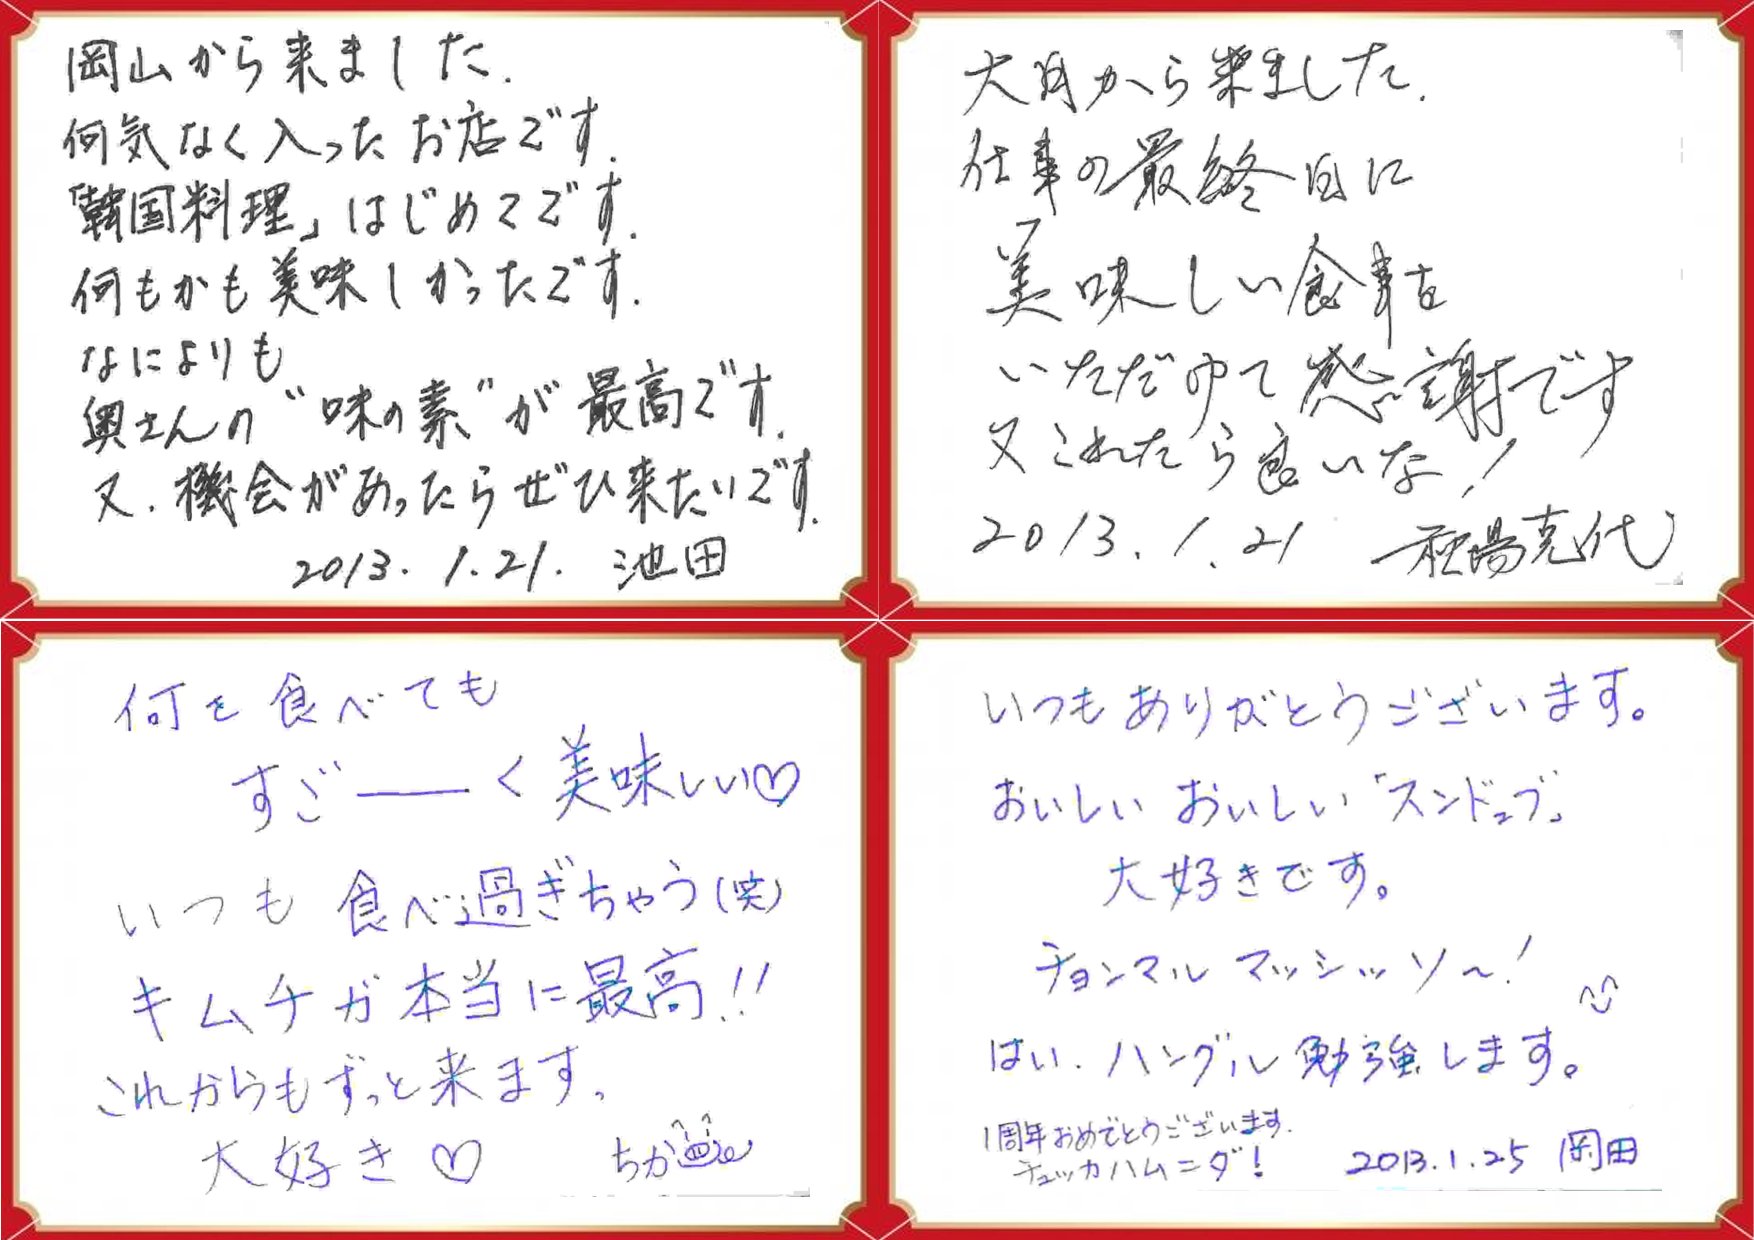 岡山から来ました.
何気なく入ったお店です.
「韓国料理」はじめてです.
何もかも美味しかったです.
なによりも
奥さんの“味の素”が最高です.
又.機会があったらぜひ来たいです.
2013.1.21. 池田
から来ました.
仕事の最終日に
美味しい食事を
いただけて感謝です
又これたら良いな!
2013.1.21 克代
何を食べても
すごーく美味しい♡
いつも食べ過ぎちゃう(笑)
キムチが本当に最高!!
これからもずっと来ます。
大好き♡ ちか
いつもありがとうございます。
おいしいおいしい「スンドゥブ」
大好きです。
チョンマルマッシッソ〜!
はい.ハングル勉強します。
1周年おめでとうございます.
チュッカハムニダ!
2013.1.25 岡田